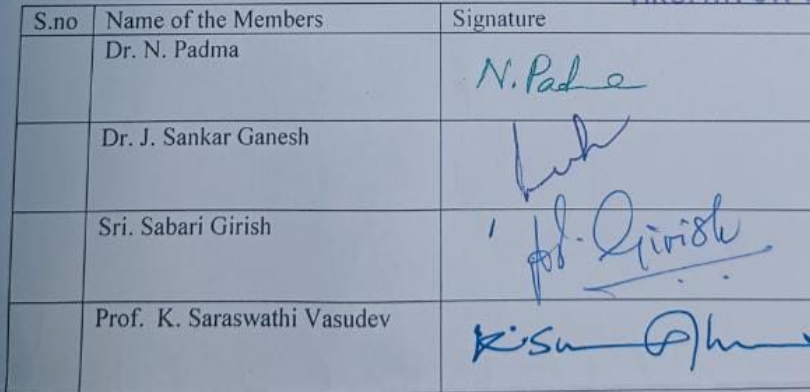 S.no Name of the Members Signature
Dr. N. Padma N. Padma
Dr. J. Sankar Ganesh
Sri. Sabari Girish Girish
Prof. K. Saraswathi Vasudev